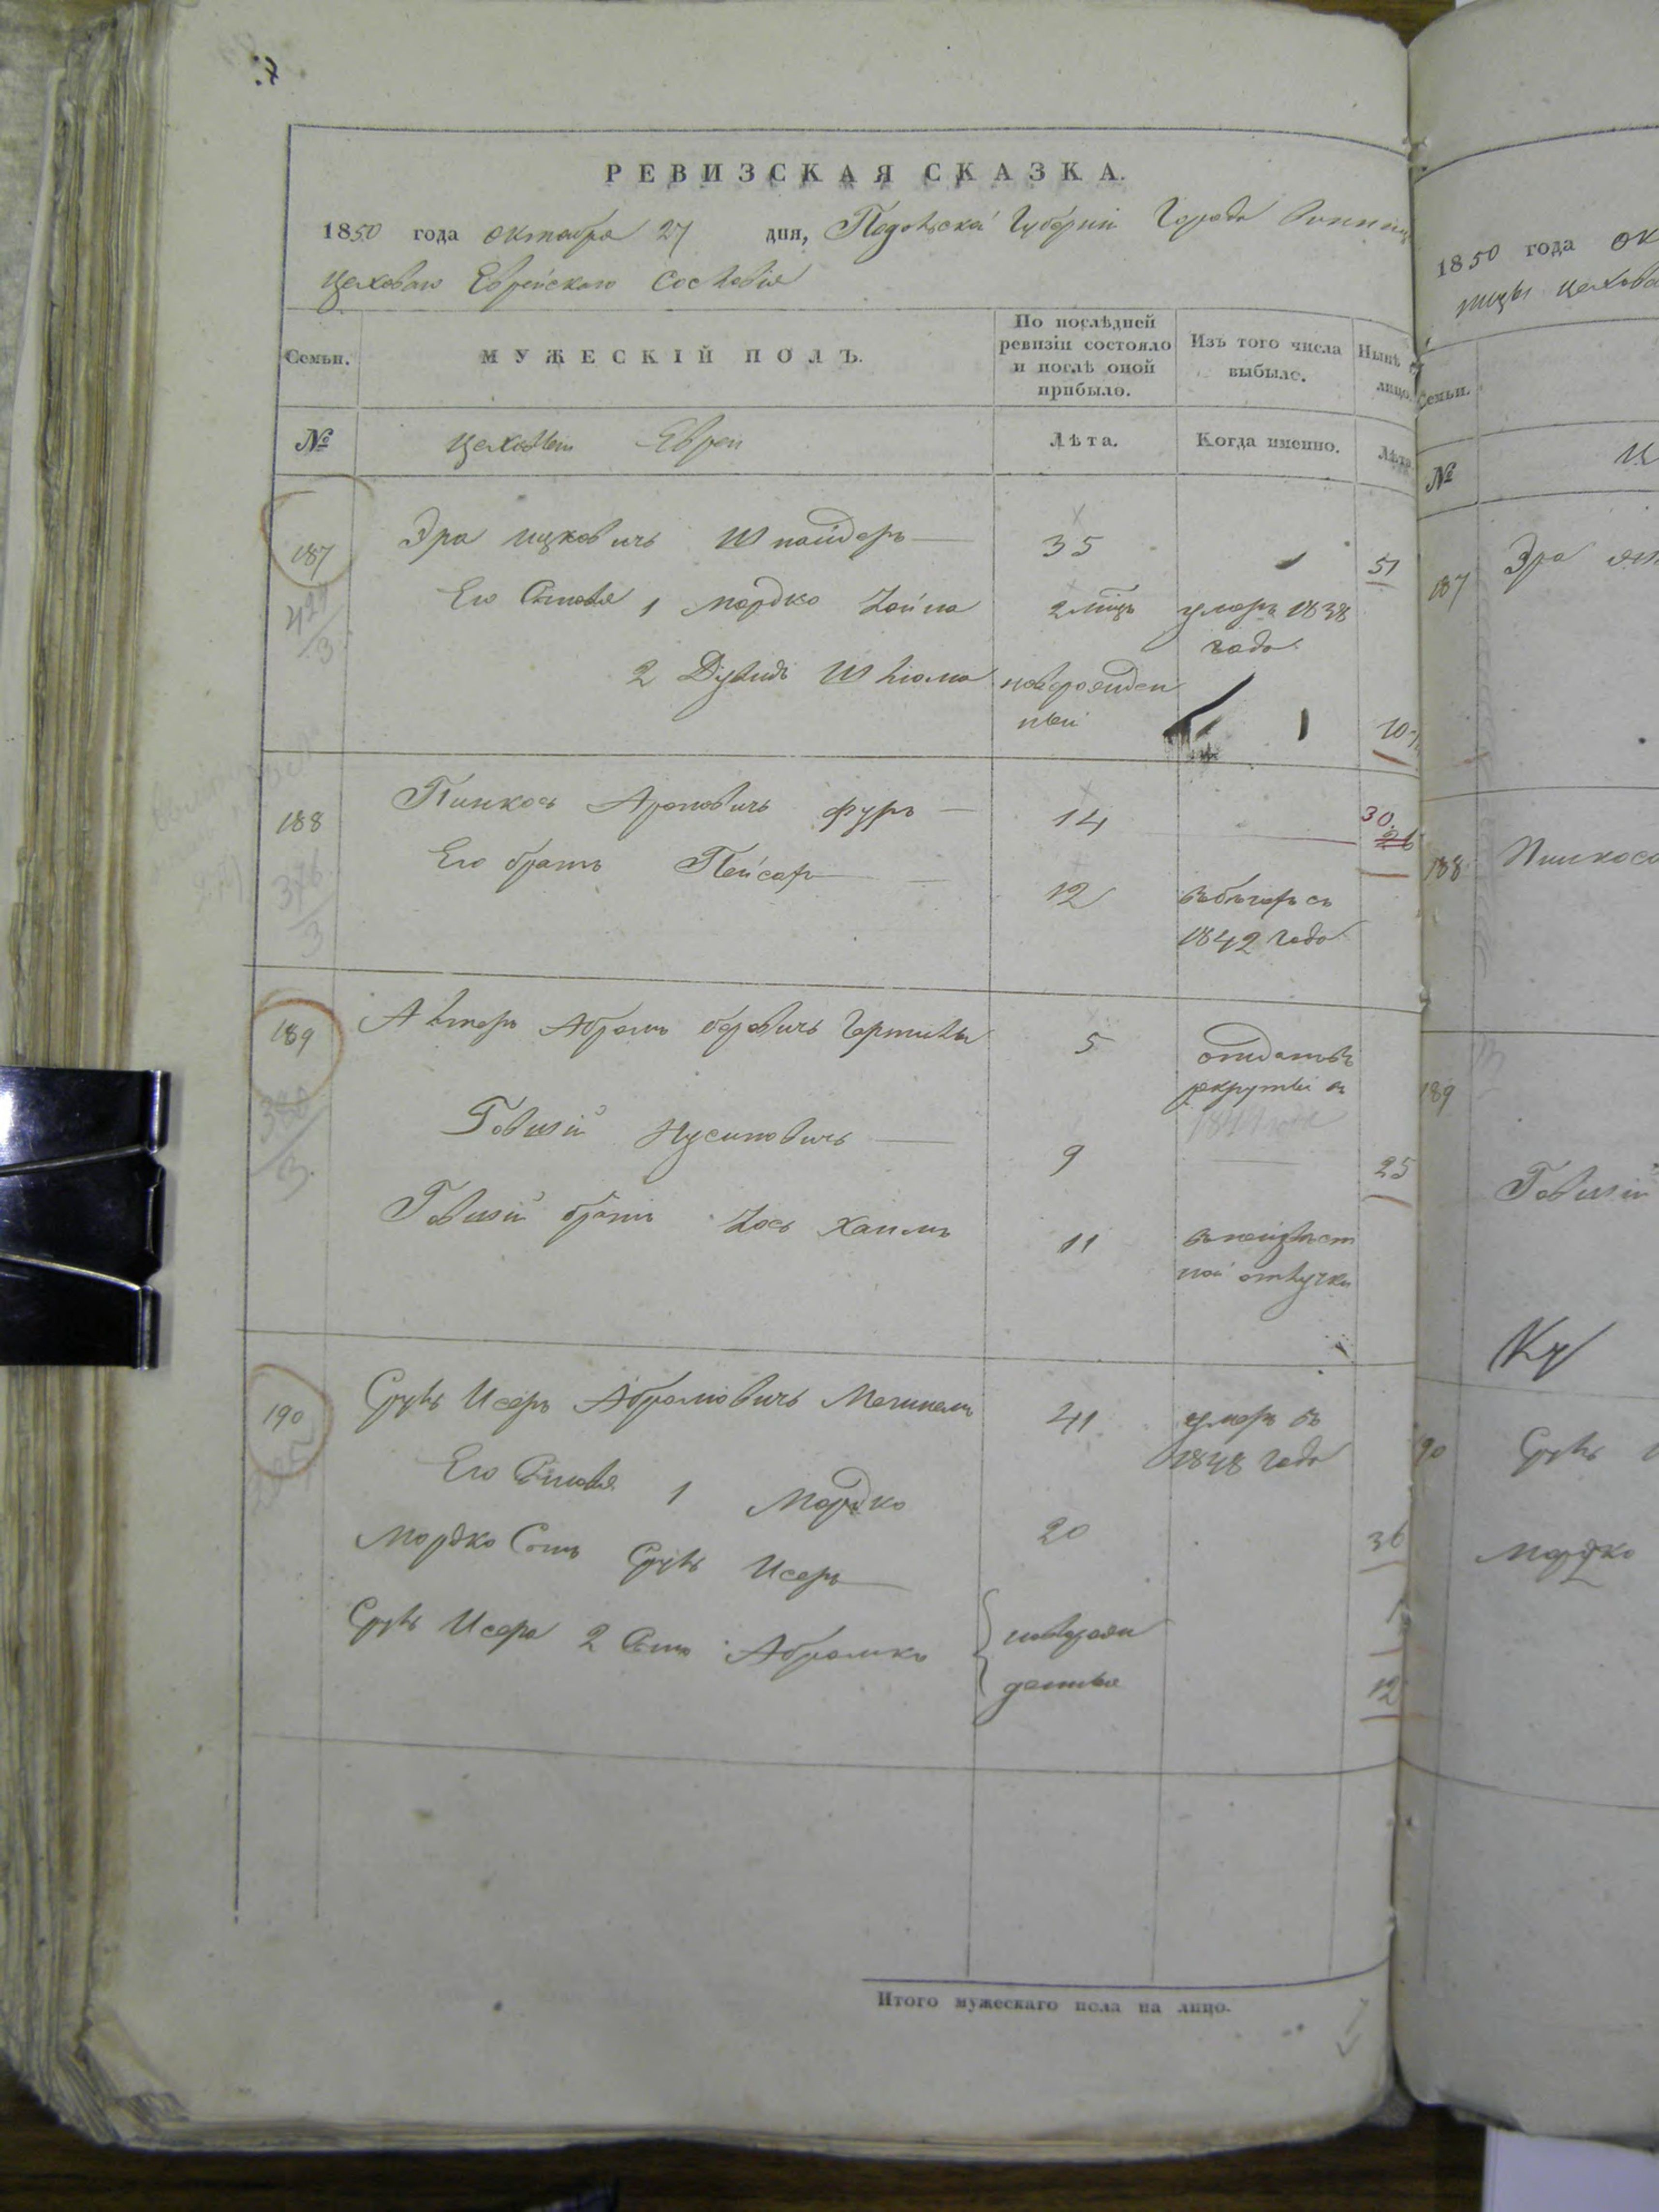 РЕВИЗСКАЯ СКАЗКА.
1850 года октября 27 дня, Подольской Губерніи Города Винни
цеховаго Еврейскаго Сословія
Семьи.
МУЖЕСКІЙ ПОЛЪ.
По послѣдней ревизіи состояло и послѣ оной прибыло.
Изъ того числа выбыло.
Нынѣ
лицо.
№
Евреи
Лѣта.
Когда именно.
Лѣта
187
Эра Ицковичъ Шнайдеръ 35 51
Его Сыновья 1 Мордко Зойма 2 мѣць умеръ 1838
года
2 Дувидъ Шліома новорожден
ный 10
188
Пинкосъ Ароновичъ Фуръ 14 30 26
Его братъ Пейсах 12 въ бѣгахъ съ
1842 года
189
Абрамъ Беровичъ 5 отданъ въ
рекруты въ
Товшій Нусиновичъ 9 25
Товшій братъ Іось Хаимъ 11 въ неизвѣст
ной отлучки
190
Сруль Исеръ Абрамовичъ 41 умеръ въ
1848 года
Его Сыновья 1 Мордко 20 36
Мордко Сынъ Сруль Исеръ новорож 1
Сруль Исера 2 Сынъ Абрамко денные 12
Итого мужескаго пола на лицо.
1850 года ок
ницы цехова
Семьи.
№
187 Эра
188 Пинкоса
189
Товшій
190 Сруль
Мордко